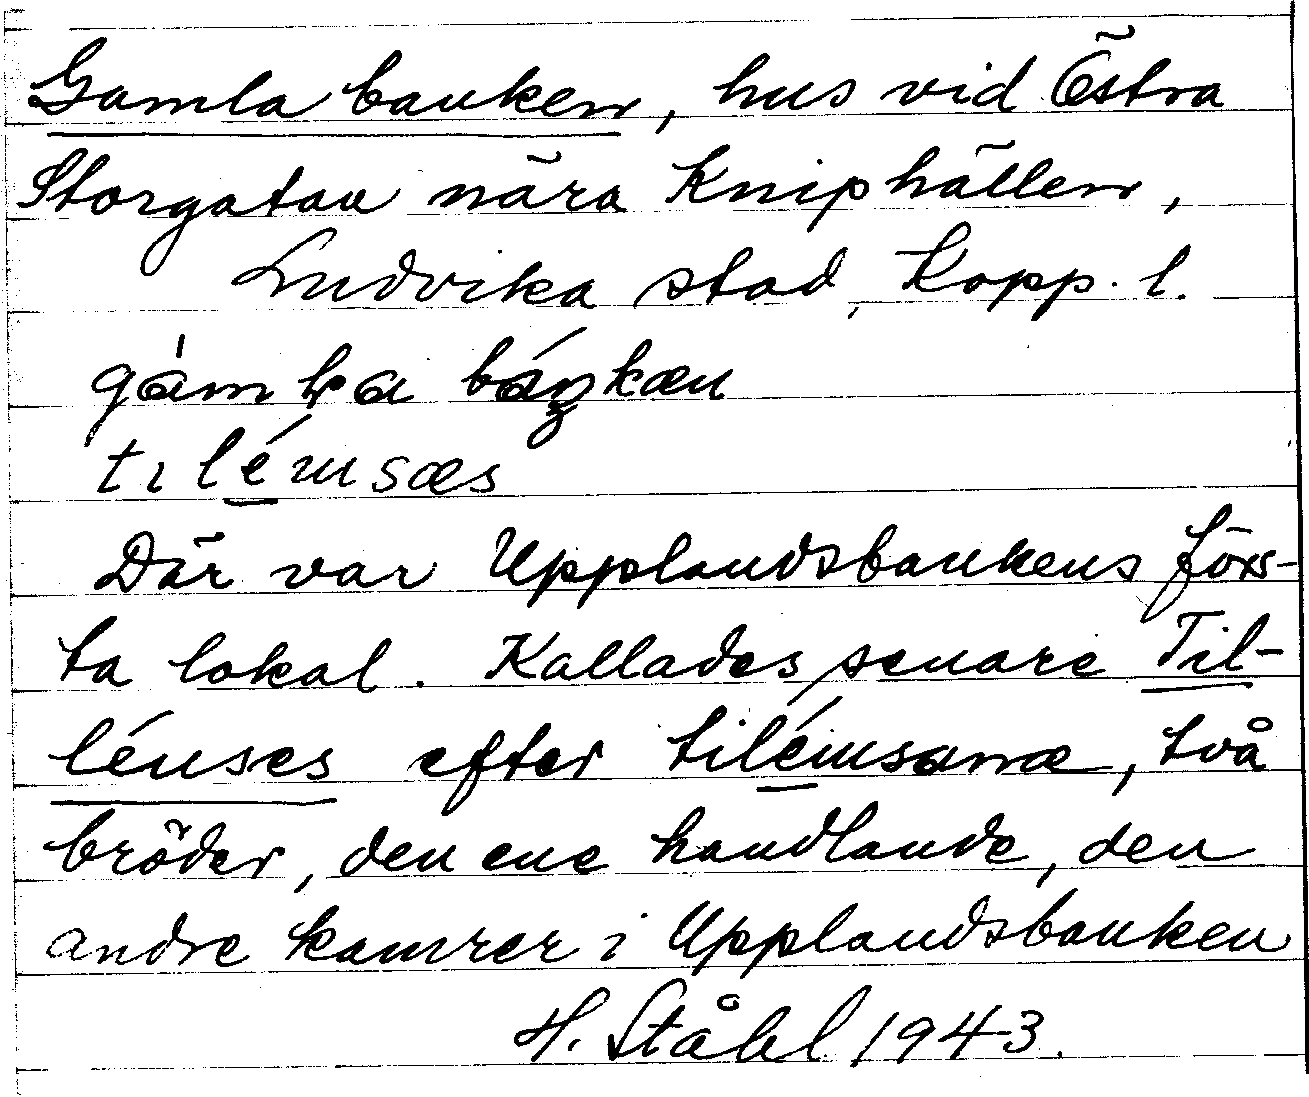 Gamla banken, hus vid Östra
Storgatan nära Kniphällen,
Ludvika stad, Kopp. l.
gámła báŋkæn
tılémsæs
Där var Upplandsbankens förs-
ta lokal. Kallades senare Til-
lénses efter tilémsaræ, två
bröder, den ene handlande, den
andre kamrer i Upplandsbanken
H. Ståhl 1943.